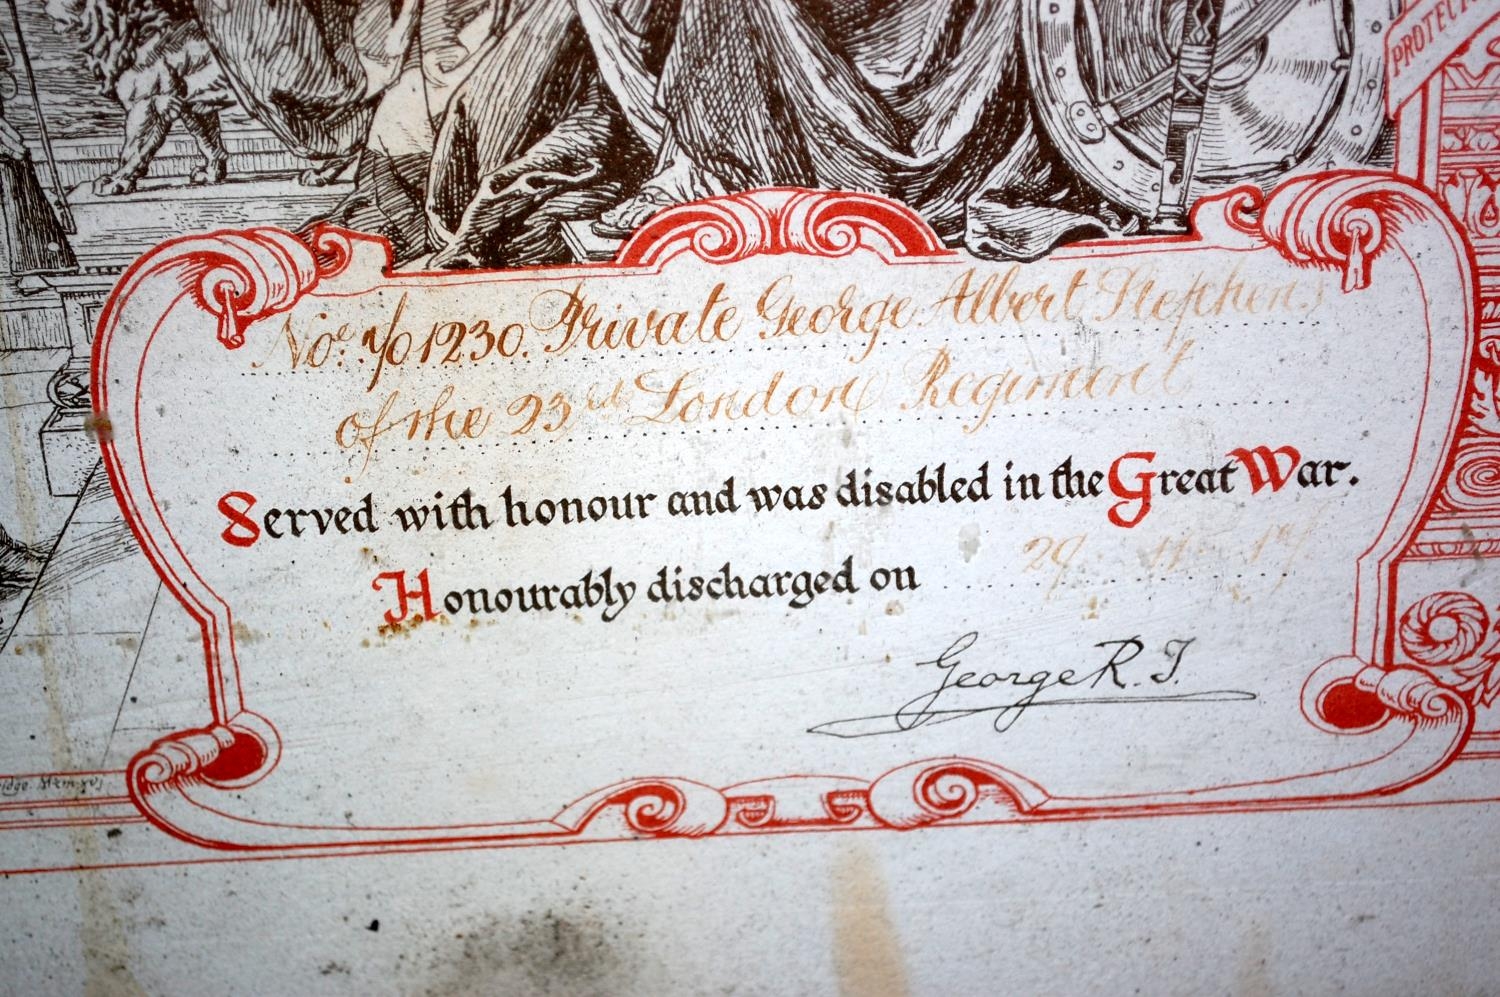 PROTECT
Noe 701230. Private George Albert Stephens
of the 23rd London Regiment
Served with honour and was disabled in the Great War.
Honourably discharged on 29 · 11 · 17
George R.I.